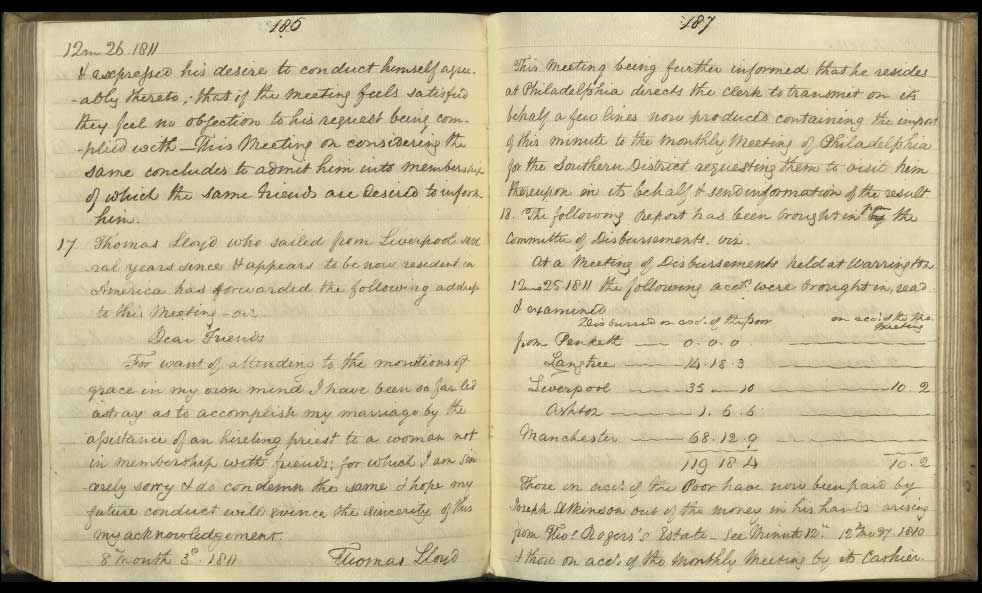 186
12m 26. 1811
& expressed his desire to conduct himself agree-
-ably thereto; that if the Meeting feels satisfied
they feel no objection to his request being com-
-plied with — This Meeting on considering the
same concludes to admit him into membership
of which the same Friends are desired to inform
him.
17 Thomas Lloyd who sailed from Liverpool seve-
ral years since & appears to be now resident in
America has forwarded the following address
to this Meeting — viz.
Dear Friends
For want of attending to the monitions of
grace in my own mind I have been so far led
astray as to accomplish my marriage by the
assistance of an hireling priest to a woman not
in membership with friends; for which I am sin-
-cerely sorry & do condemn the same & hope my
future conduct will evince the sincerity of this
my acknowledgement.
8th month 3d 1811 Thomas Lloyd
187
This Meeting being further informed that he resides
at Philadelphia directs the clerk to transmit on its
behalf a few lines now produced containing the import
of this minute to the Monthly Meeting of Philadelphia
for the Southern District requesting them to visit him
thereupon on its behalf & send information of the result
18. The following Report has been brought in by the
Committee of Disbursements. viz.
At a Meeting of Disbursements held at Warrington
12mo 25. 1811 the following accts were brought in, read
& examined
Disbursed on acct. of the poor on acct. of the Mo. Meeting
from Penketh — 0. 0. 0
Langtree — 14. 18. 3
Liverpool — 35 — 10 — 10. 2
Ashton — 1. 6. 6
Manchester — 68. 12. 9
119 18 4 10. 2
Those on acct. of the Poor have now been paid by
Joseph Atkinson out of the money in his hands arising
from Thos. Rogers's Estate. See Minute 12th. 12th Mo 27 1810
& those on acct. of the Monthly Meeting by its Cashier.